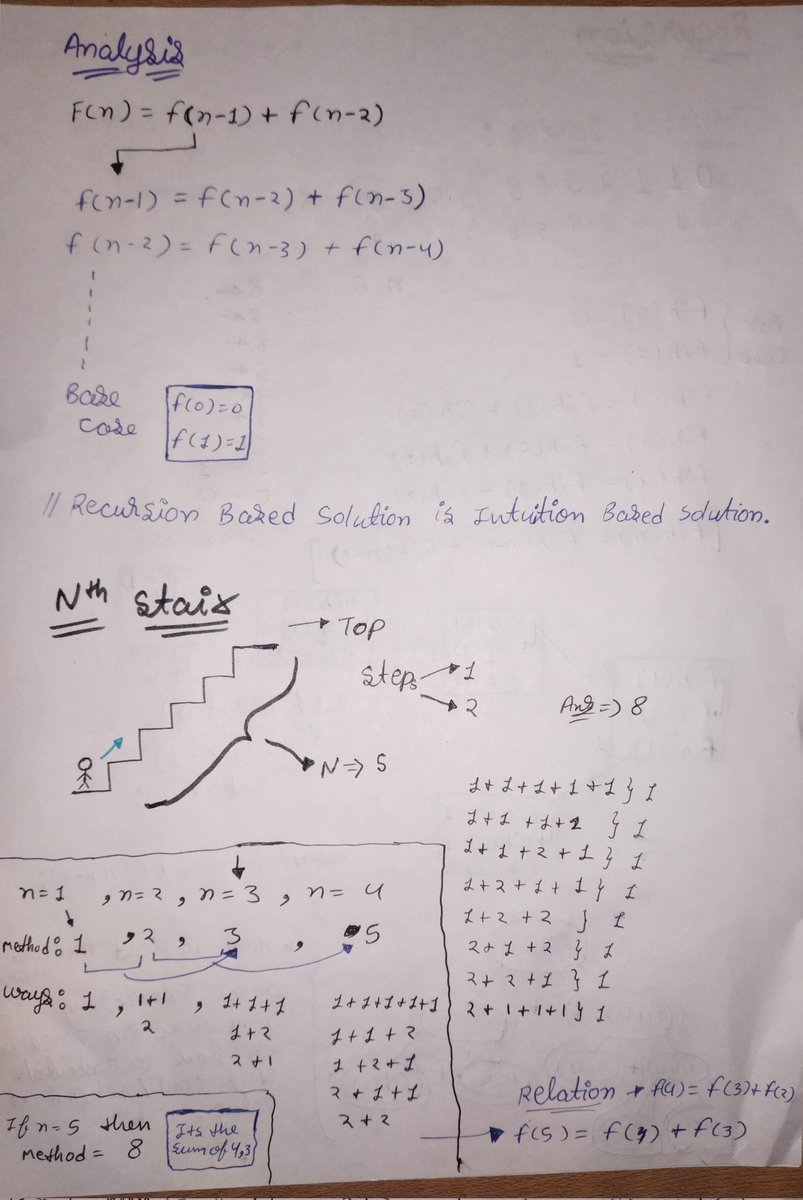 Analysis
F(n) = f(n-1) + f(n-2)
f(n-1) = f(n-2) + f(n-3)
f(n-2) = f(n-3) + f(n-4)
Base
Case
f(0)=0
f(1)=1
// Recursion Based Solution is Intuition Based solution.
Nth Stair
→ TOP
Steps → 1
→ 2
Ans => 8
N => 5
1+1+1+1+1 } 1
1+1+1+2 } 1
1+1+2+1 } 1
1+2+1+1 } 1
1+2+2 } 1
2+1+2 } 1
2+2+1 } 1
2+1+1+1 } 1
n=1 , n=2 , n=3 , n= 4
method: 1 , 2 , 3 , 5
ways: 1 , 1+1 , 1+1+1 1+1+1+1+1
2 1+2 1+1+2
2+1 1+2+1
2+1+1
2+2
If n=5 then
method = 8
Its the
sum of 4,3
Relation → f(4) = f(3)+f(2)
f(5) = f(4) + f(3)